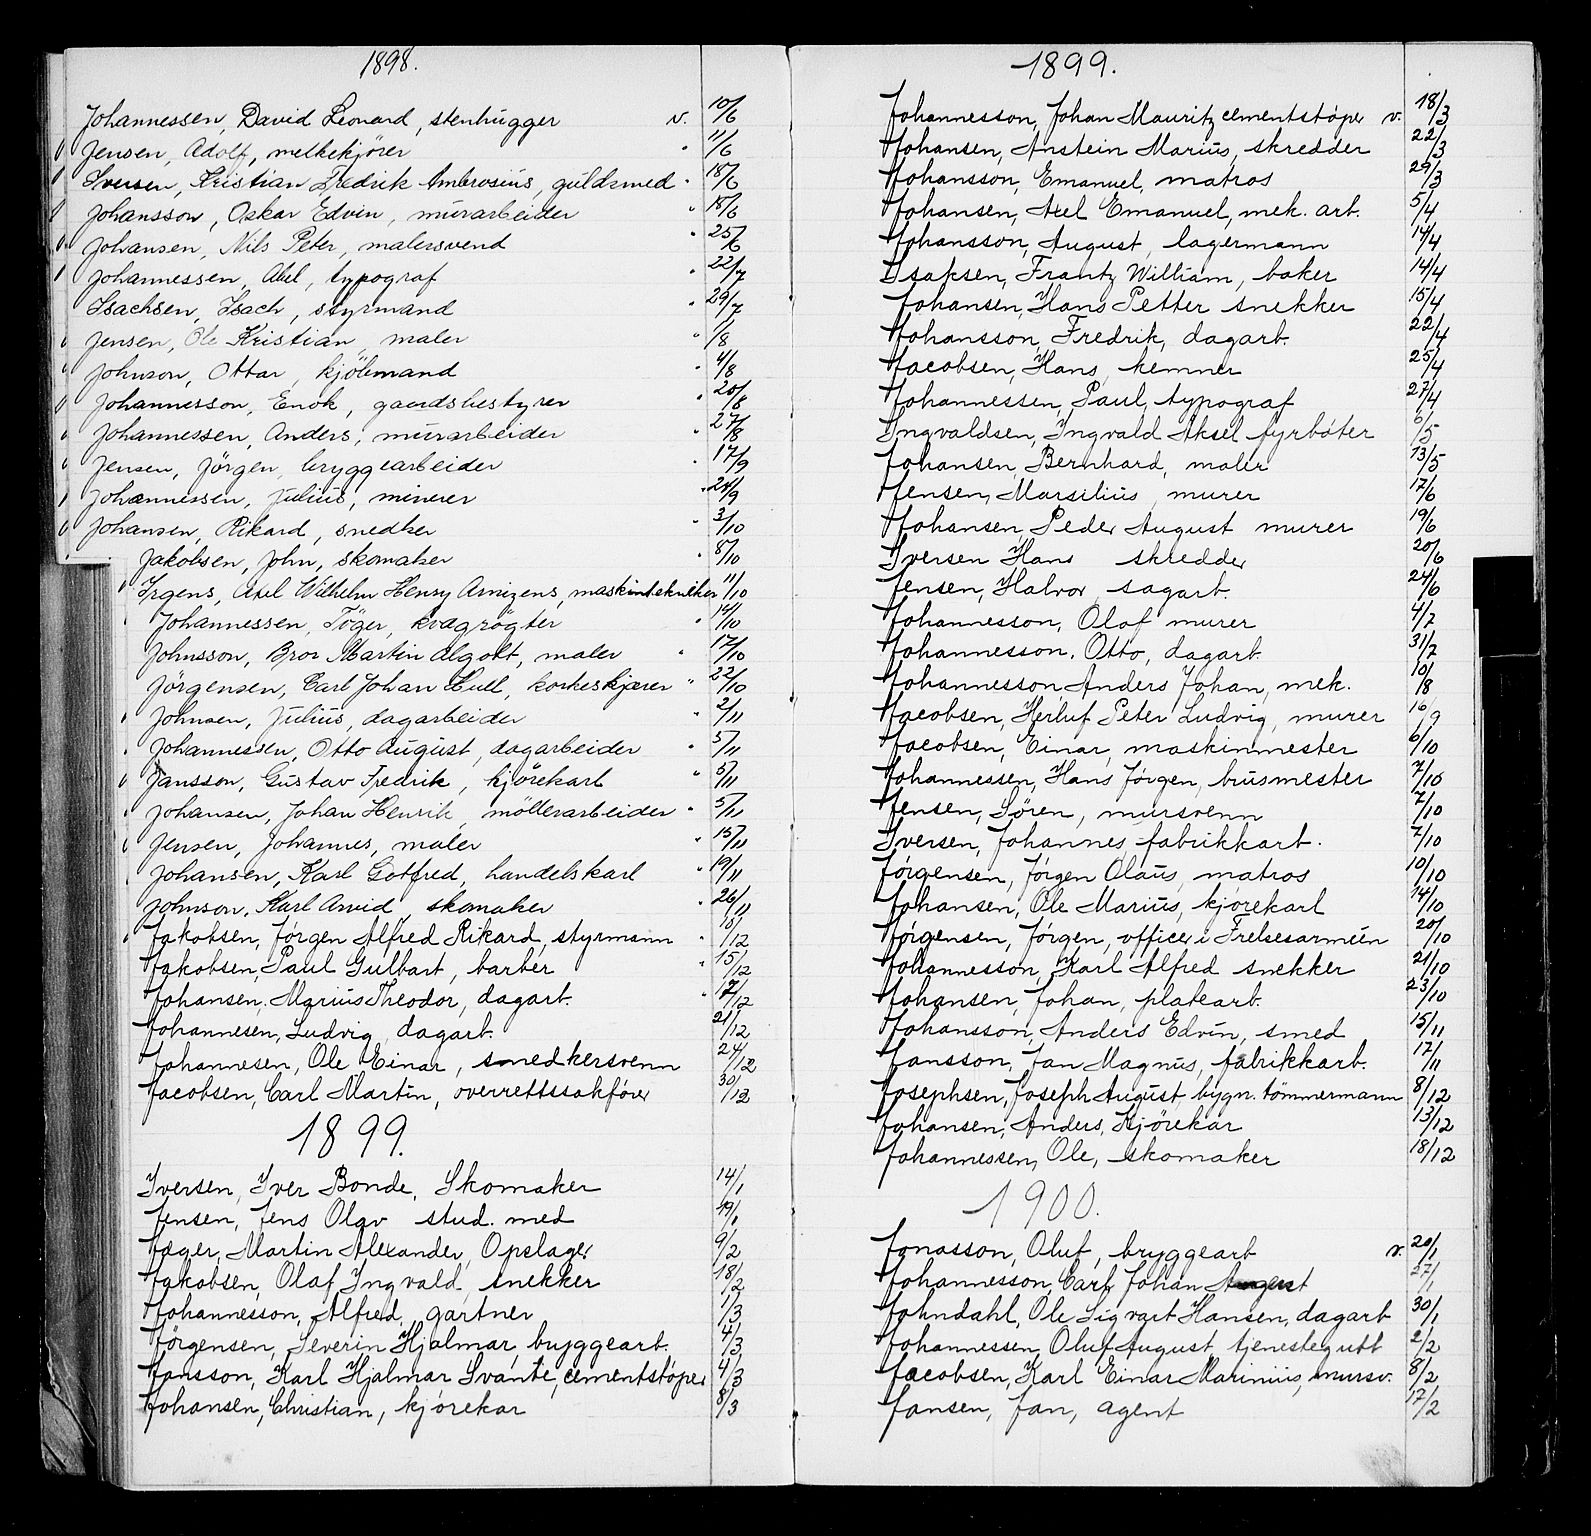 1898.
Johannessen, David Leonard, stenhugger v. 10/6
Jensen, Adolf, melkekjører " 11/6
Iversen, Kristian Fredrik Ambrosius, guldsmed " 18/6
Johansson, Oskar Edvin, murarbeider " 18/6
Johansen, Nils Peter, malersvend " 25/6
Johannessen, Axel, typograf " 22/7
Isachsen, Isach, styrmand " 29/7
Jensen, Ole Kristian, maler " 1/8
Johnson, Ottar, kjøbmand " 4/8
Johannesson, Enok, gaardsbestyrer " 20/8
Johannessen, Anders, murarbeider " 27/8
Jensen, Jörgen, bryggearbeider " 17/9
Johannessen, Julius, minerer " 24/9
Johansen, Rikard, snedker " 3/10
Jakobsen, John, skomaker " 8/10
Irgens, Axel Wilhelm Henry Arnizens, maskintekniker 11/10
Johannessen, Töger, kvægrögter " 14/10
Johnsson, Bror Martin Algott, maler " 17/10
Jörgensen, Carl Johan Emil, korkeskjærer " 22/10
Johnsen, Julius, dagarbeider " 2/11
Johannessen, Otto August, dagarbeider " 5/11
Jansson, Gustav Fredrik, kjörekarl " 5/11
Johansen, Johan Henrik, möllerarbeider " 5/11
Jensen, Johannes, maler " 15/11
Johansen, Karl Gotfred, handelskarl " 19/11
Johnson, Karl Arvid, skomaker " 26/11
Jakobsen, Jørgen Alfred Rikard, styrmann " 10/12
Jakobsen, Paul Gulbart, barber " 15/12
Johansen, Marius Theodor, dagarb. " 17/12
Johannesen, Ludvig, dagarb. 21/12
Johannesen, Ole Einar, snedkersvenn 24/12
Jacobsen, Carl Martin, overrettssakfører 30/12
1899.
Iversen, Iver Bonde, Skomaker 14/1
Jensen, Jens Olav stud. med 19/1
Jæger, Martin Alexander, Opslager 9/2
Jakobsen, Olaf Ingvald, snekker 18/2
Johannesson, Alfred, gartner 1/3
Jörgensen, Severin Hjalmar, bryggearb. 4/3
Jansson, Karl Hjalmar Svante, cementstöper 4/3
Johansen, Christian, kjörekar 8/3
1899.
Johannesson, Johan Mauritz cementstøper v. 18/3
Johansen, Anstein Marius, skredder 22/3
Johansson, Emanuel, matros 29/3
Johansen, Axel Emanuel, mek. arb. 5/4
Johansson, August, lagermann 14/4
Isaksen, Frantz William, baker 14/4
Johansen, Hans Petter snekker 15/4
Johansson, Fredrik, dagarb. 22/4
Jacobsen, Hans, kemner 25/4
Johannessen, Paul, typograf 27/4
Ingvaldsen, Ingvald Aksel fyrbøter 6/5
Johansen, Bernhard, maler 13/5
Jensen, Marsilius, murer 17/6
Johansen, Peder August murer 19/6
Iversen Hans skredder 20/6
Jensen, Halvor, sagarb. 24/6
Johannesson, Olof murer 4/7
Johannesson, Otto, dagarb. 31/7
Johannesson, Anders Johan, mek. 10/8
Jacobsen, Herluf Peter Ludvig, murer 16/9
Jacobsen, Einar, maskinmester 6/10
Johannessen, Hans Jørgen, brusmester 7/10
Jensen, Sören, mursvenn 7/10
Iversen, Johannes fabrikkarb. 7/10
Jørgensen, Jørgen Olaus, matros 10/10
Johansen, Ole Marius, kjørekarl 14/10
Jørgensen, Jörgen, officer i Frelsesarméen 20/10
Johannesson, Karl Alfred snekker 21/10
Johansen, Johan, platearb. 23/10
Johansson, Anders Edvin, smed 15/11
Jansson, Jan Magnus, fabrikkarb. 17/11
Josephsen, Joseph August, bygn. tömmermann 8/12
Johansen, Anders, Kjörekar 13/12
Johannessen, Ole, skomaker 18/12
1900.
Jonasson, Oluf, bryggearb v. 20/1
Johannesson, Carl Johan August 27/1
Johndahl, Ole Sigvart Hansen, dagarb 30/1
Johannessen, Oluf August, tjenestegutt 2/2
Jacobsen, Karl Einar Marinius, mursv. 8/2
Jansen, Jan, agent 17/2